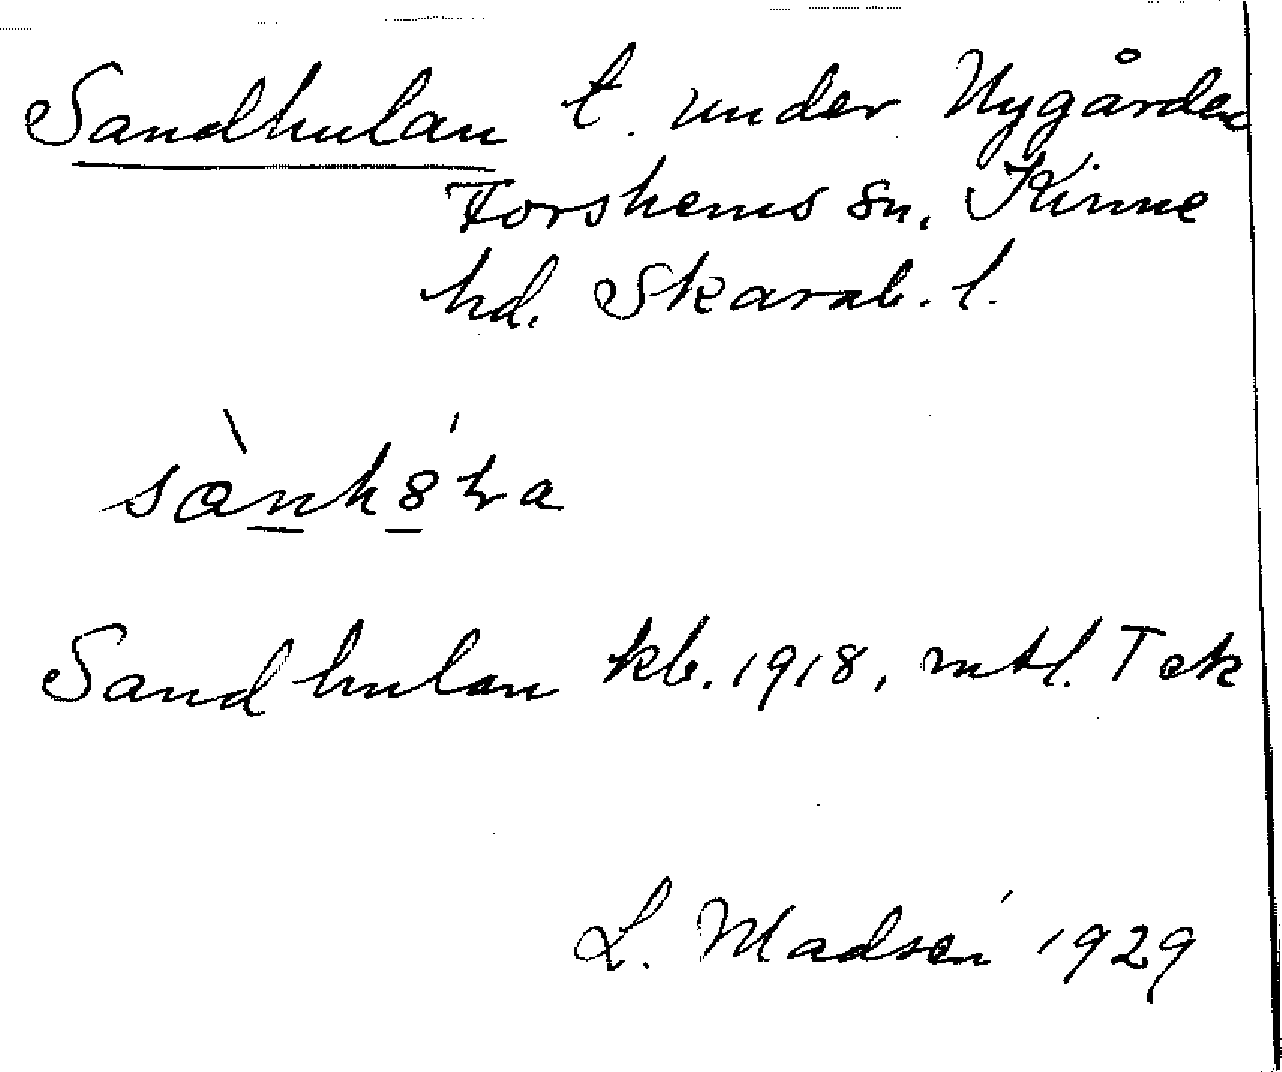 Sandhulan t. under Nygården
Forshems sn. Kinne
hd. Skarab. l.
Sandhulan kb. 1918, mtl. Tek
L. Madsén 1929